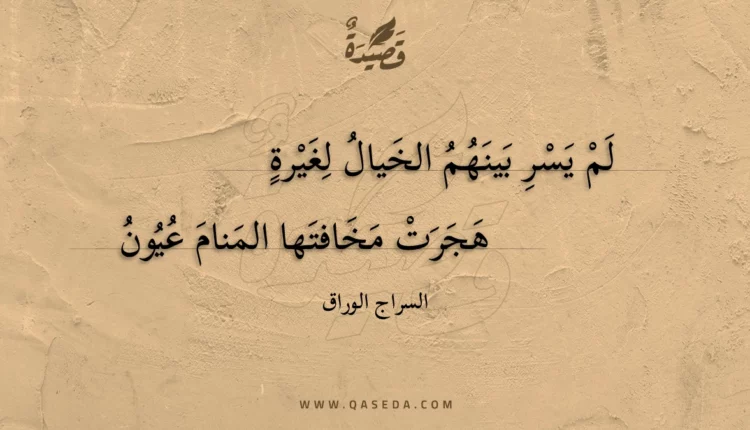 قَصِيدَةٌ
لَمْ يَسْرِ بَينَهُمُ الخَيالُ لِغَيْرةٍ
هَجَرَتْ مَخَافتَها المَنامَ عُيُونُ
السراج الوراق
WWW.QASEDA.COM